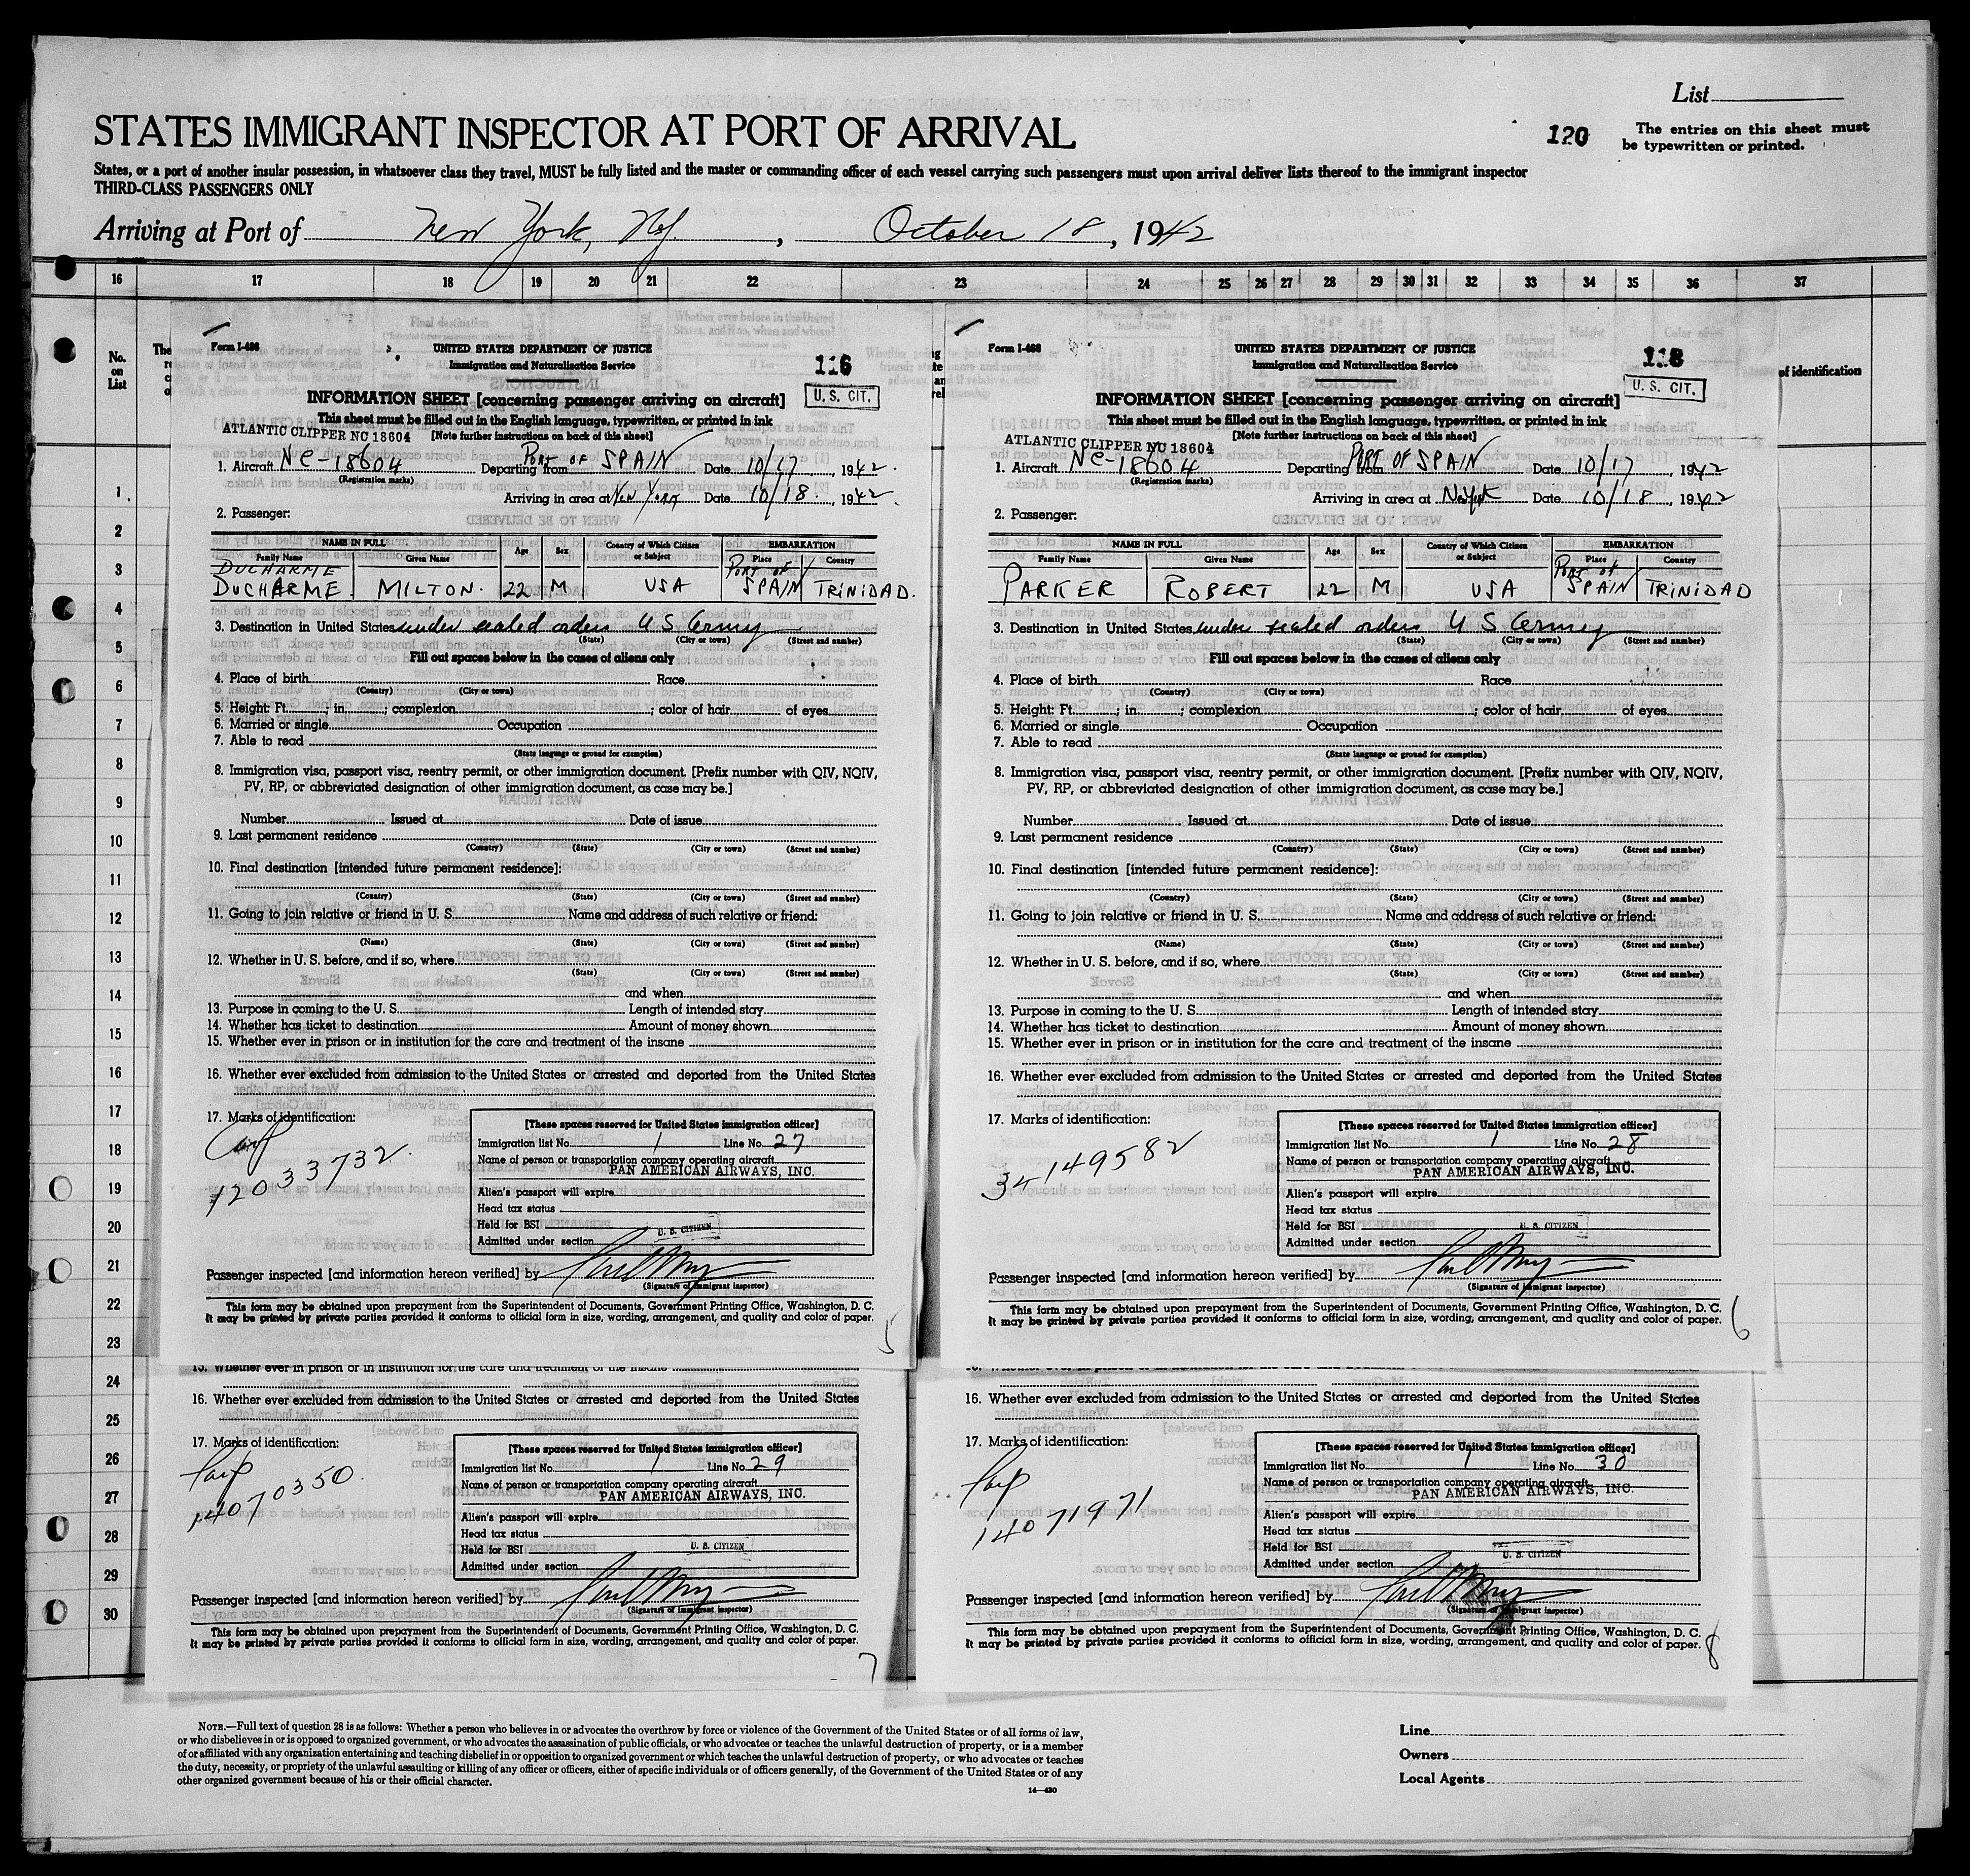 List
STATES IMMIGRANT INSPECTOR AT PORT OF ARRIVAL
120
The entries on this sheet must
be typewritten or printed.
States, or a port of another insular possession, in whatsoever class they travel, MUST be fully listed and the master or commanding officer of each vessel carrying such passengers must upon arrival deliver lists thereof to the immigrant inspector
THIRD-CLASS PASSENGERS ONLY
Arriving at Port of New York, N.Y., October 18, 1942
16 17 18 19 20 21 22 23 24 25 26 27 28 29 30 31 32 33 34 35 36 37
No.
on
List
The
of identification
1
2
3
4
5
6
7
8
9
10
11
12
13
14
15
16
17
18
19
20
21
22
23
24
25
26
27
28
29
30
Form I-466
UNITED STATES DEPARTMENT OF JUSTICE
Immigration and Naturalization Service
116
U. S. CIT.
INFORMATION SHEET [concerning passenger arriving on aircraft]
This sheet must be filled out in the English language, typewritten, or printed in ink
ATLANTIC CLIPPER NC 18604 [Note further instructions on back of this sheet]
1. Aircraft NC-18604 Departing from PORT OF SPAIN Date 10/17, 1942
(Registration marks)
Arriving in area at New York Date 10/18, 1942
2. Passenger:
NAME IN FULL Age Sex Country of Which Citizen or Subject EMBARKATION
Family Name Given Name Place Country
DUCHARME
DUCHARME MILTON. 22 M USA PORT OF SPAIN TRINIDAD.
3. Destination in United States under sealed orders U S Army
(State) (City or town) (Street and number)
Fill out spaces below in the cases of aliens only
4. Place of birth Race
(Country) (City or town)
5. Height: Ft. ; in. ; complexion ; color of hair of eyes
6. Married or single Occupation
7. Able to read
(State language or ground for exemption)
8. Immigration visa, passport visa, reentry permit, or other immigration document. [Prefix number with QIV, NQIV,
PV, RP, or abbreviated designation of other immigration document, as case may be.]
Number Issued at Date of issue
9. Last permanent residence
(Country) (State) (City or town) (Street and number)
10. Final destination [intended future permanent residence]:
(Country) (State) (City or town) (Street and number)
11. Going to join relative or friend in U. S. Name and address of such relative or friend:
(Name) (State) (City or town) (Street and number)
12. Whether in U. S. before, and if so, where
(State) (City or town) (Street and number)
and when
13. Purpose in coming to the U. S. Length of intended stay
14. Whether has ticket to destination Amount of money shown
15. Whether ever in prison or in institution for the care and treatment of the insane
16. Whether ever excluded from admission to the United States or arrested and deported from the United States
17. Marks of identification:
12033732.
[These spaces reserved for United States immigration officer]
Immigration list No. 1 Line No. 27
Name of person or transportation company operating aircraft
PAN AMERICAN AIRWAYS, INC.
Alien's passport will expire
Head tax status
Held for BSI
U. S. CITIZEN
Admitted under section
Passenger inspected [and information hereon verified] by
(Signature of immigrant inspector)
This form may be obtained upon prepayment from the Superintendent of Documents, Government Printing Office, Washington, D. C.
It may be printed by private parties provided it conforms to official form in size, wording, arrangement, and quality and color of paper.
5
Form I-466
UNITED STATES DEPARTMENT OF JUSTICE
Immigration and Naturalization Service
118
U. S. CIT.
INFORMATION SHEET [concerning passenger arriving on aircraft]
This sheet must be filled out in the English language, typewritten, or printed in ink
ATLANTIC CLIPPER NC 18604 [Note further instructions on back of this sheet]
1. Aircraft NC-18604 Departing from PORT OF SPAIN Date 10/17 1942
(Registration marks)
Arriving in area at New York Date 10/18, 1942
2. Passenger:
NAME IN FULL Age Sex Country of Which Citizen or Subject EMBARKATION
Family Name Given Name Place Country
PARKER ROBERT 22 M USA PORT OF SPAIN TRINIDAD
3. Destination in United States under sealed orders U S Army
(State) (City or town) (Street and number)
Fill out spaces below in the cases of aliens only
4. Place of birth Race
(Country) (City or town)
5. Height: Ft. ; in. ; complexion ; color of hair of eyes
6. Married or single Occupation
7. Able to read
(State language or ground for exemption)
8. Immigration visa, passport visa, reentry permit, or other immigration document. [Prefix number with QIV, NQIV,
PV, RP, or abbreviated designation of other immigration document, as case may be.]
Number Issued at Date of issue
9. Last permanent residence
(Country) (State) (City or town) (Street and number)
10. Final destination [intended future permanent residence]:
(Country) (State) (City or town) (Street and number)
11. Going to join relative or friend in U. S. Name and address of such relative or friend:
(Name) (State) (City or town) (Street and number)
12. Whether in U. S. before, and if so, where
(State) (City or town) (Street and number)
and when
13. Purpose in coming to the U. S. Length of intended stay
14. Whether has ticket to destination Amount of money shown
15. Whether ever in prison or in institution for the care and treatment of the insane
16. Whether ever excluded from admission to the United States or arrested and deported from the United States
17. Marks of identification:
34149582
[These spaces reserved for United States immigration officer]
Immigration list No. 1 Line No. 28
Name of person or transportation company operating aircraft
PAN AMERICAN AIRWAYS, INC.
Alien's passport will expire
Head tax status
Held for BSI
U. S. CITIZEN
Admitted under section
Passenger inspected [and information hereon verified] by
(Signature of immigrant inspector)
This form may be obtained upon prepayment from the Superintendent of Documents, Government Printing Office, Washington, D. C.
It may be printed by private parties provided it conforms to official form in size, wording, arrangement, and quality and color of paper.
6
15. Whether ever in prison or in institution for the care and treatment of the insane
16. Whether ever excluded from admission to the United States or arrested and deported from the United States
17. Marks of identification:
14070350.
[These spaces reserved for United States immigration officer]
Immigration list No. 1 Line No. 29
Name of person or transportation company operating aircraft
PAN AMERICAN AIRWAYS, INC.
Alien's passport will expire
Head tax status
Held for BSI
U. S. CITIZEN
Admitted under section
Passenger inspected [and information hereon verified] by
(Signature of immigrant inspector)
This form may be obtained upon prepayment from the Superintendent of Documents, Government Printing Office, Washington, D. C.
It may be printed by private parties provided it conforms to official form in size, wording, arrangement, and quality and color of paper.
7
16. Whether ever excluded from admission to the United States or arrested and deported from the United States
17. Marks of identification:
14071971
[These spaces reserved for United States immigration officer]
Immigration list No. 1 Line No. 30
Name of person or transportation company operating aircraft
PAN AMERICAN AIRWAYS, INC.
Alien's passport will expire
Head tax status
Held for BSI
U. S. CITIZEN
Admitted under section
Passenger inspected [and information hereon verified] by
(Signature of immigrant inspector)
This form may be obtained upon prepayment from the Superintendent of Documents, Government Printing Office, Washington, D. C.
It may be printed by private parties provided it conforms to official form in size, wording, arrangement, and quality and color of paper.
8
NOTE.—Full text of question 28 is as follows: Whether a person who believes in or advocates the overthrow by force or violence of the Government of the United States or of all forms of law,
or who disbelieves in or is opposed to organized government, or who advocates the assassination of public officials, or who advocates or teaches the unlawful destruction of property, or is a member
of or affiliated with any organization entertaining and teaching disbelief in or opposition to organized government or which teaches the unlawful destruction of property, or who advocates or teaches
the duty, necessity, or propriety of the unlawful assaulting or killing of any officer or officers, either of specific individuals or of officers generally, of the Government of the United States or of any
other organized government because of his or their official character.
14—430
Line
Owners
Local Agents